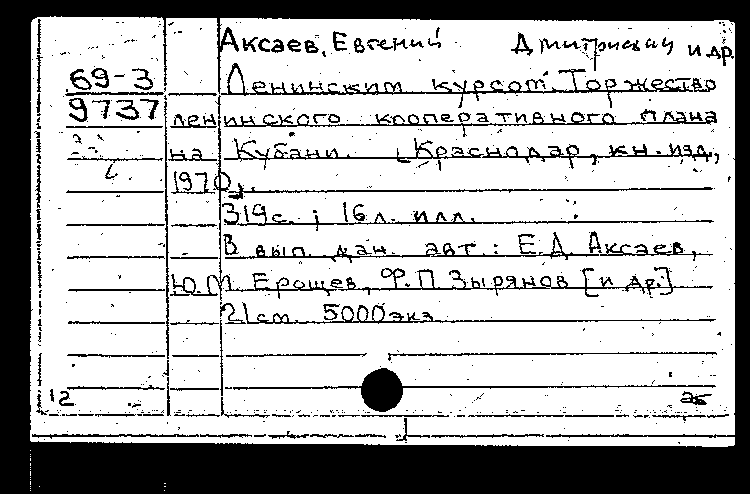 Аксаев, Евгений Дмитриевич и др.
69-3
Ленинским курсом. Торжество
9737
ленинского кооперативного плана
на Кубани. [Краснодар, кн. изд.,
1970].
319с.; 16л. илл.
В вып. дан. авт.: Е.Д. Аксаев,
Ю.М. Ерощев, Ф.П. Зырянов [и др.]
21см. 5000экз
12